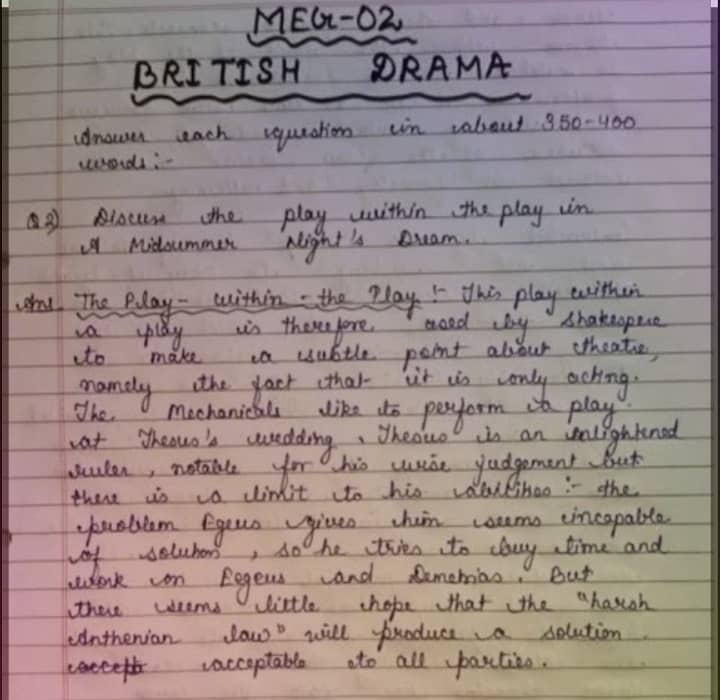 MEG-02
BRITISH DRAMA
Answer each question in about 350-400
words :-
Q2) Discuss the play within the play in
A Midsummer Night's Dream.
Ans. The Play-within-the Play :- This play within
a play is therefore used by Shakespere
to make a subtle point about theatre,
namely the fact that it is only acting.
The Mechanicals like to perform a play
at Theous's wedding. Theous is an enlightened
ruler, notable for his wise judgement but
there is a limit to his abilities :- the
problem Egeus gives him seems incapable
of solution, so he tries to buy time and
work on Eegeus and Demetrias. But
there seems little hope that the "harsh
Anthenian law" will produce a solution
accept acceptable to all parties.